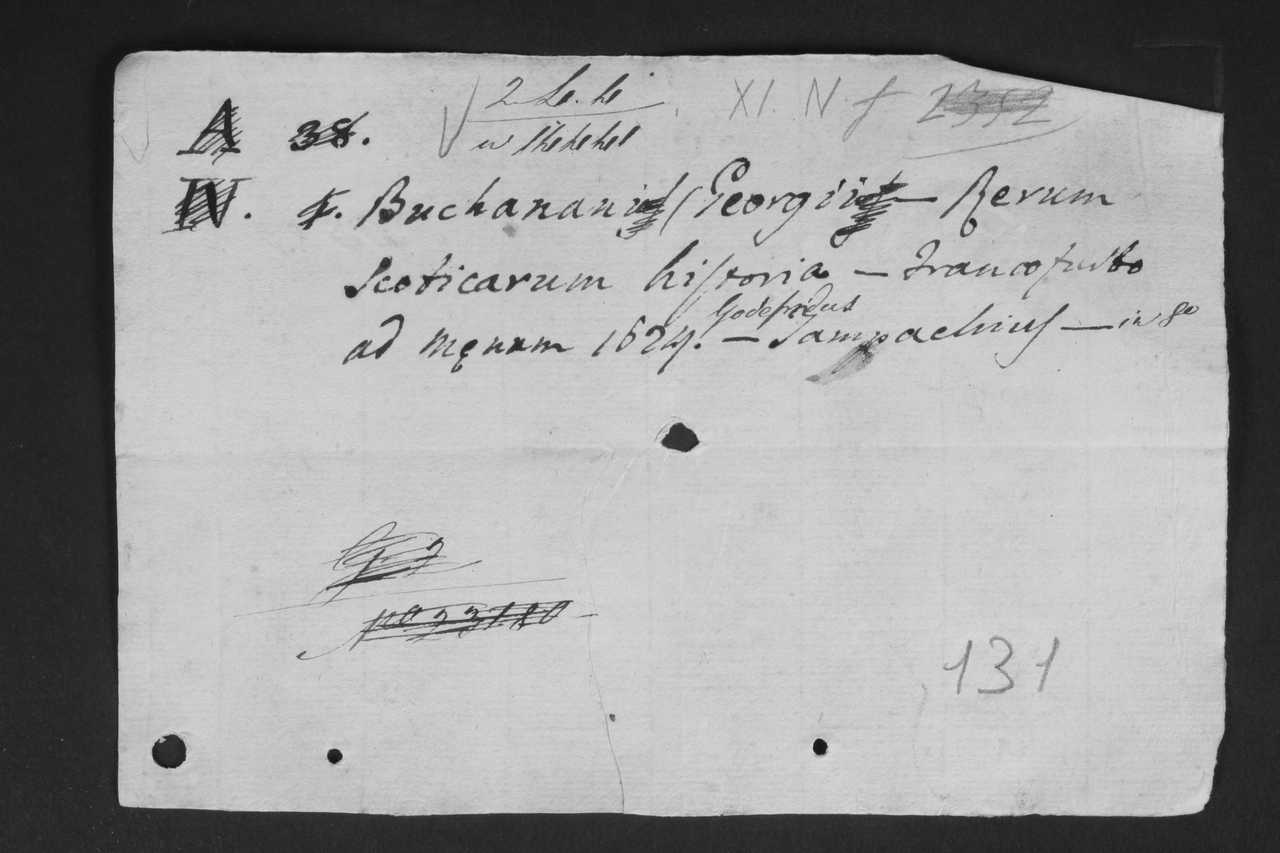 A 38.
XI. N. f 2352
IV. f. Buchanani (Georgii — Rerum
Scoticarum historia — Francofurto
ad Męnum 1624. — Godefridus Tampachius — in 8o
131